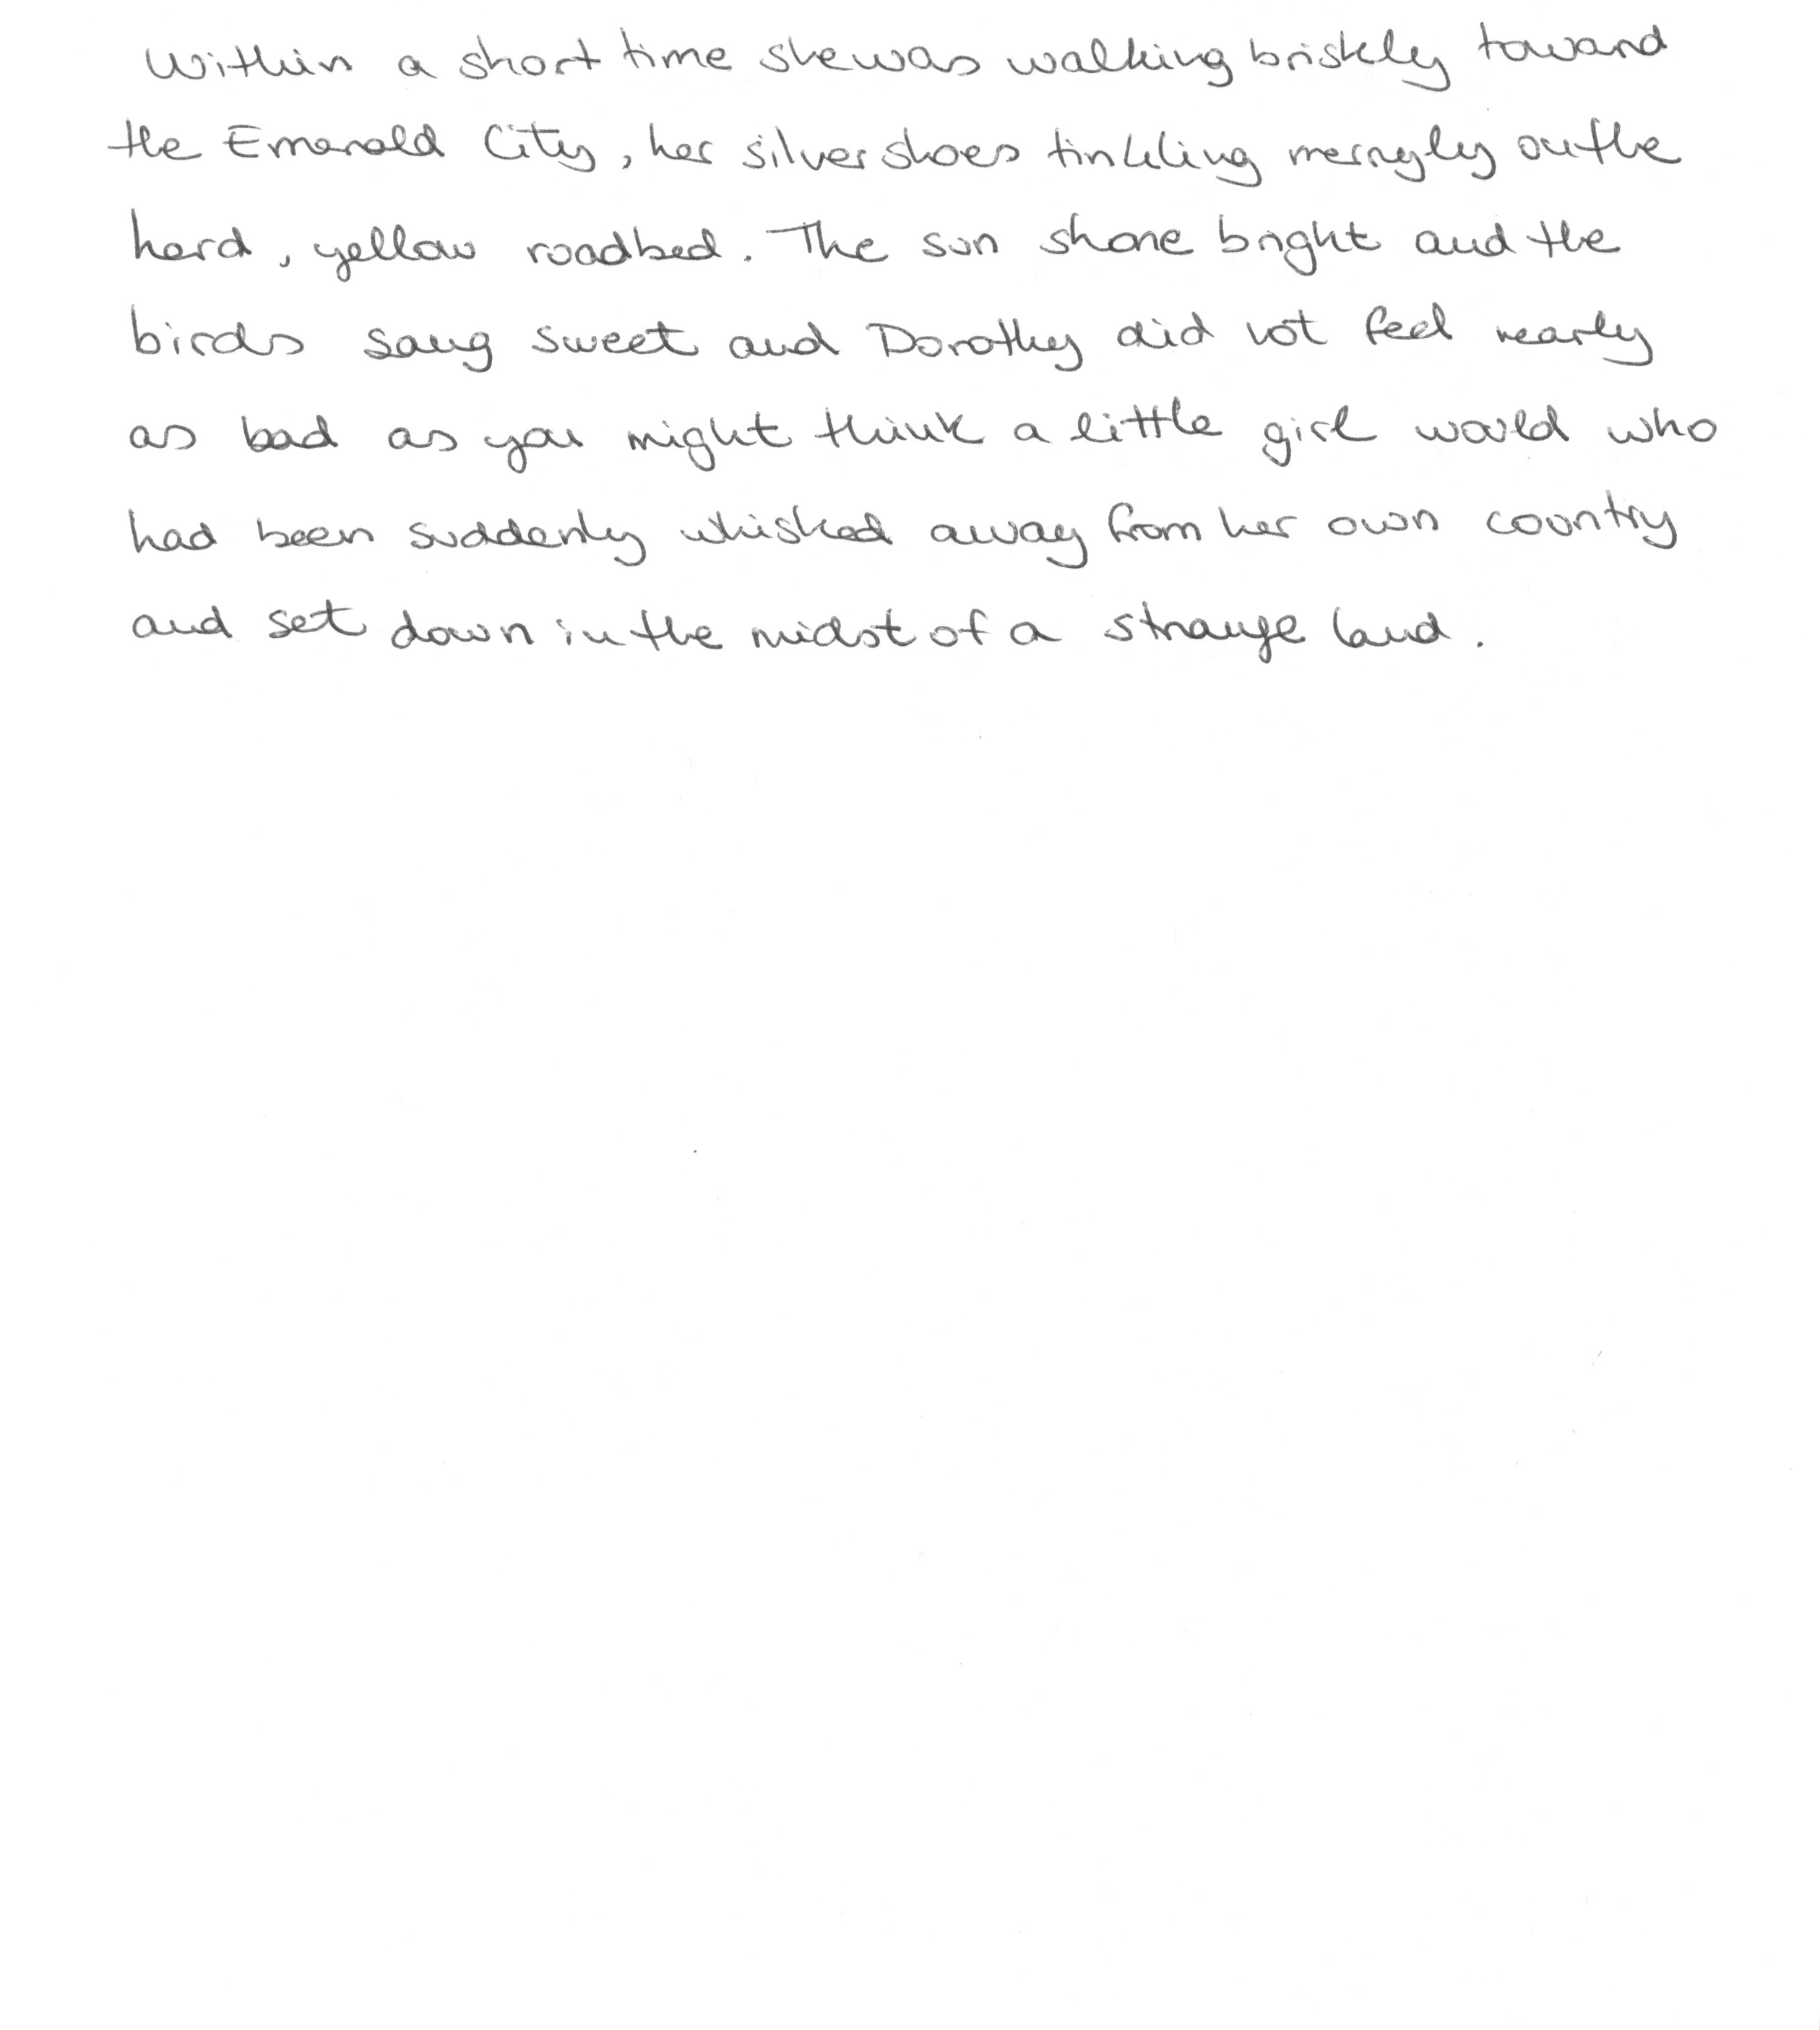 Within a short time she was walking briskly toward
the Emerald City, her silver shoes tinkling merryly on the
hard, yellow roadbed. The sun shone bright and the
birds sang sweet and Dorothy did not feel nearly
as bad as you might think a little girl would who
had been suddenly whisked away from her own country
and set down in the midst of a strange land.